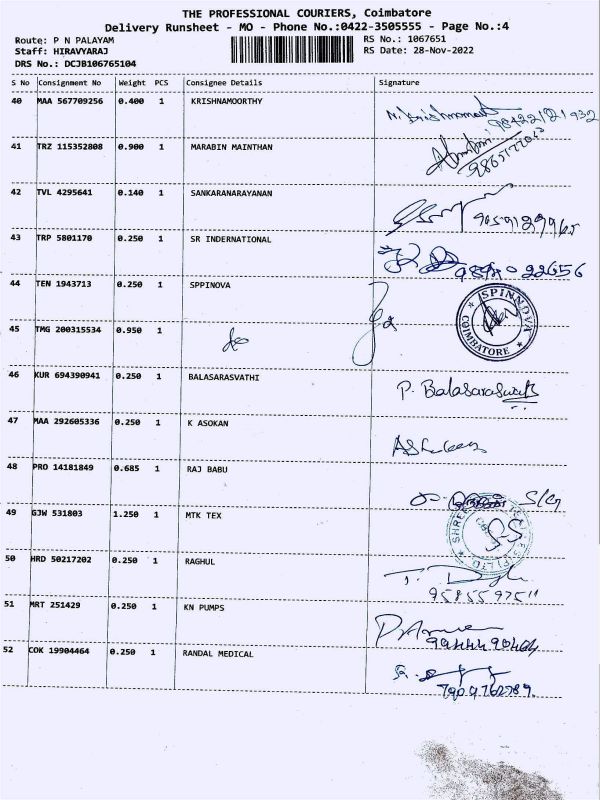 THE PROFESSIONAL COURIERS, Coimbatore
Delivery Runsheet - MO - Phone No.:0422-3505555 - Page No.:4
Route: P N PALAYAM RS No.: 1067651
Staff: HIRAVYARAJ RS Date: 28-Nov-2022
DRS No.: DCJB106765104
S No Consignment No Weight PCS Consignee Details Signature
40 MAA 567709256 0.400 1 KRISHNAMOORTHY
41 TRZ 115352808 0.900 1 MARABIN MAINTHAN
42 TVL 4295641 0.140 1 SANKARANARAYANAN
43 TRP 5801170 0.250 1 SR INDERNATIONAL
44 TEN 1943713 0.250 1 SPPINOVA
SPINNOVA
COIMBATORE
45 TMG 200315534 0.950 1
do
46 KUR 694390941 0.250 1 BALASARASVATHI P. Balasaraswathi
47 MAA 292605336 0.250 1 K ASOKAN
48 PRO 14181849 0.685 1 RAJ BABU
49 GJW 531803 1.250 1 MTK TEX
50 HRD 50217202 0.250 1 RAGHUL
51 MRT 251429 0.250 1 KN PUMPS
52 COK 19904464 0.250 1 RANDAL MEDICAL